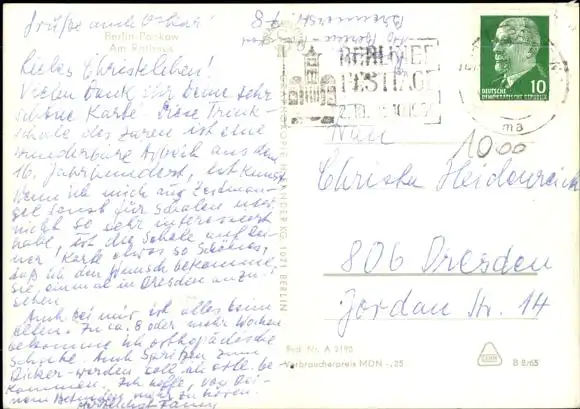 Grüße auch Oskar!
Berlin-Pankow
Am Rathaus
Liebes Christeleben!
Vielen Dank für Deine sehr
schöne Karte. Diese Trink-
schale des Zaren ist eine
wunderbare Arbeit aus dem
16. Jahrhundert,
Wenn ich mich aus Zeitman-
gel sonst für Schalen usw.
nicht so sehr interessiert
habe, ist die Schale auf Dei-
ner Karte etwas so Schönes,
daß ich den Wunsch bekomme,
sie einmal in Dresden anzu-
sehen.
Auch bei mir ist alles beim
alten. Zu ca. 8 oder mehr Wochen
bekomme ich orthopädische
Schuhe. Auch Spritzen zum
Dicker-werden soll ich be-
kommen. Ich hoffe, von Dei-
nem Befinden mehr zu hören.
Herzlichst
KG 1071 BERLIN
BERLINER
FESTTAGE
10
DEUTSCHE
DEMOKRATISCHE REPUBLIK
1000
Christa Heidenreich
806 Dresden
Jordan Str. 14
Best.-Nr. A 2195
Verbraucherpreis MDN -,25
B 8/65